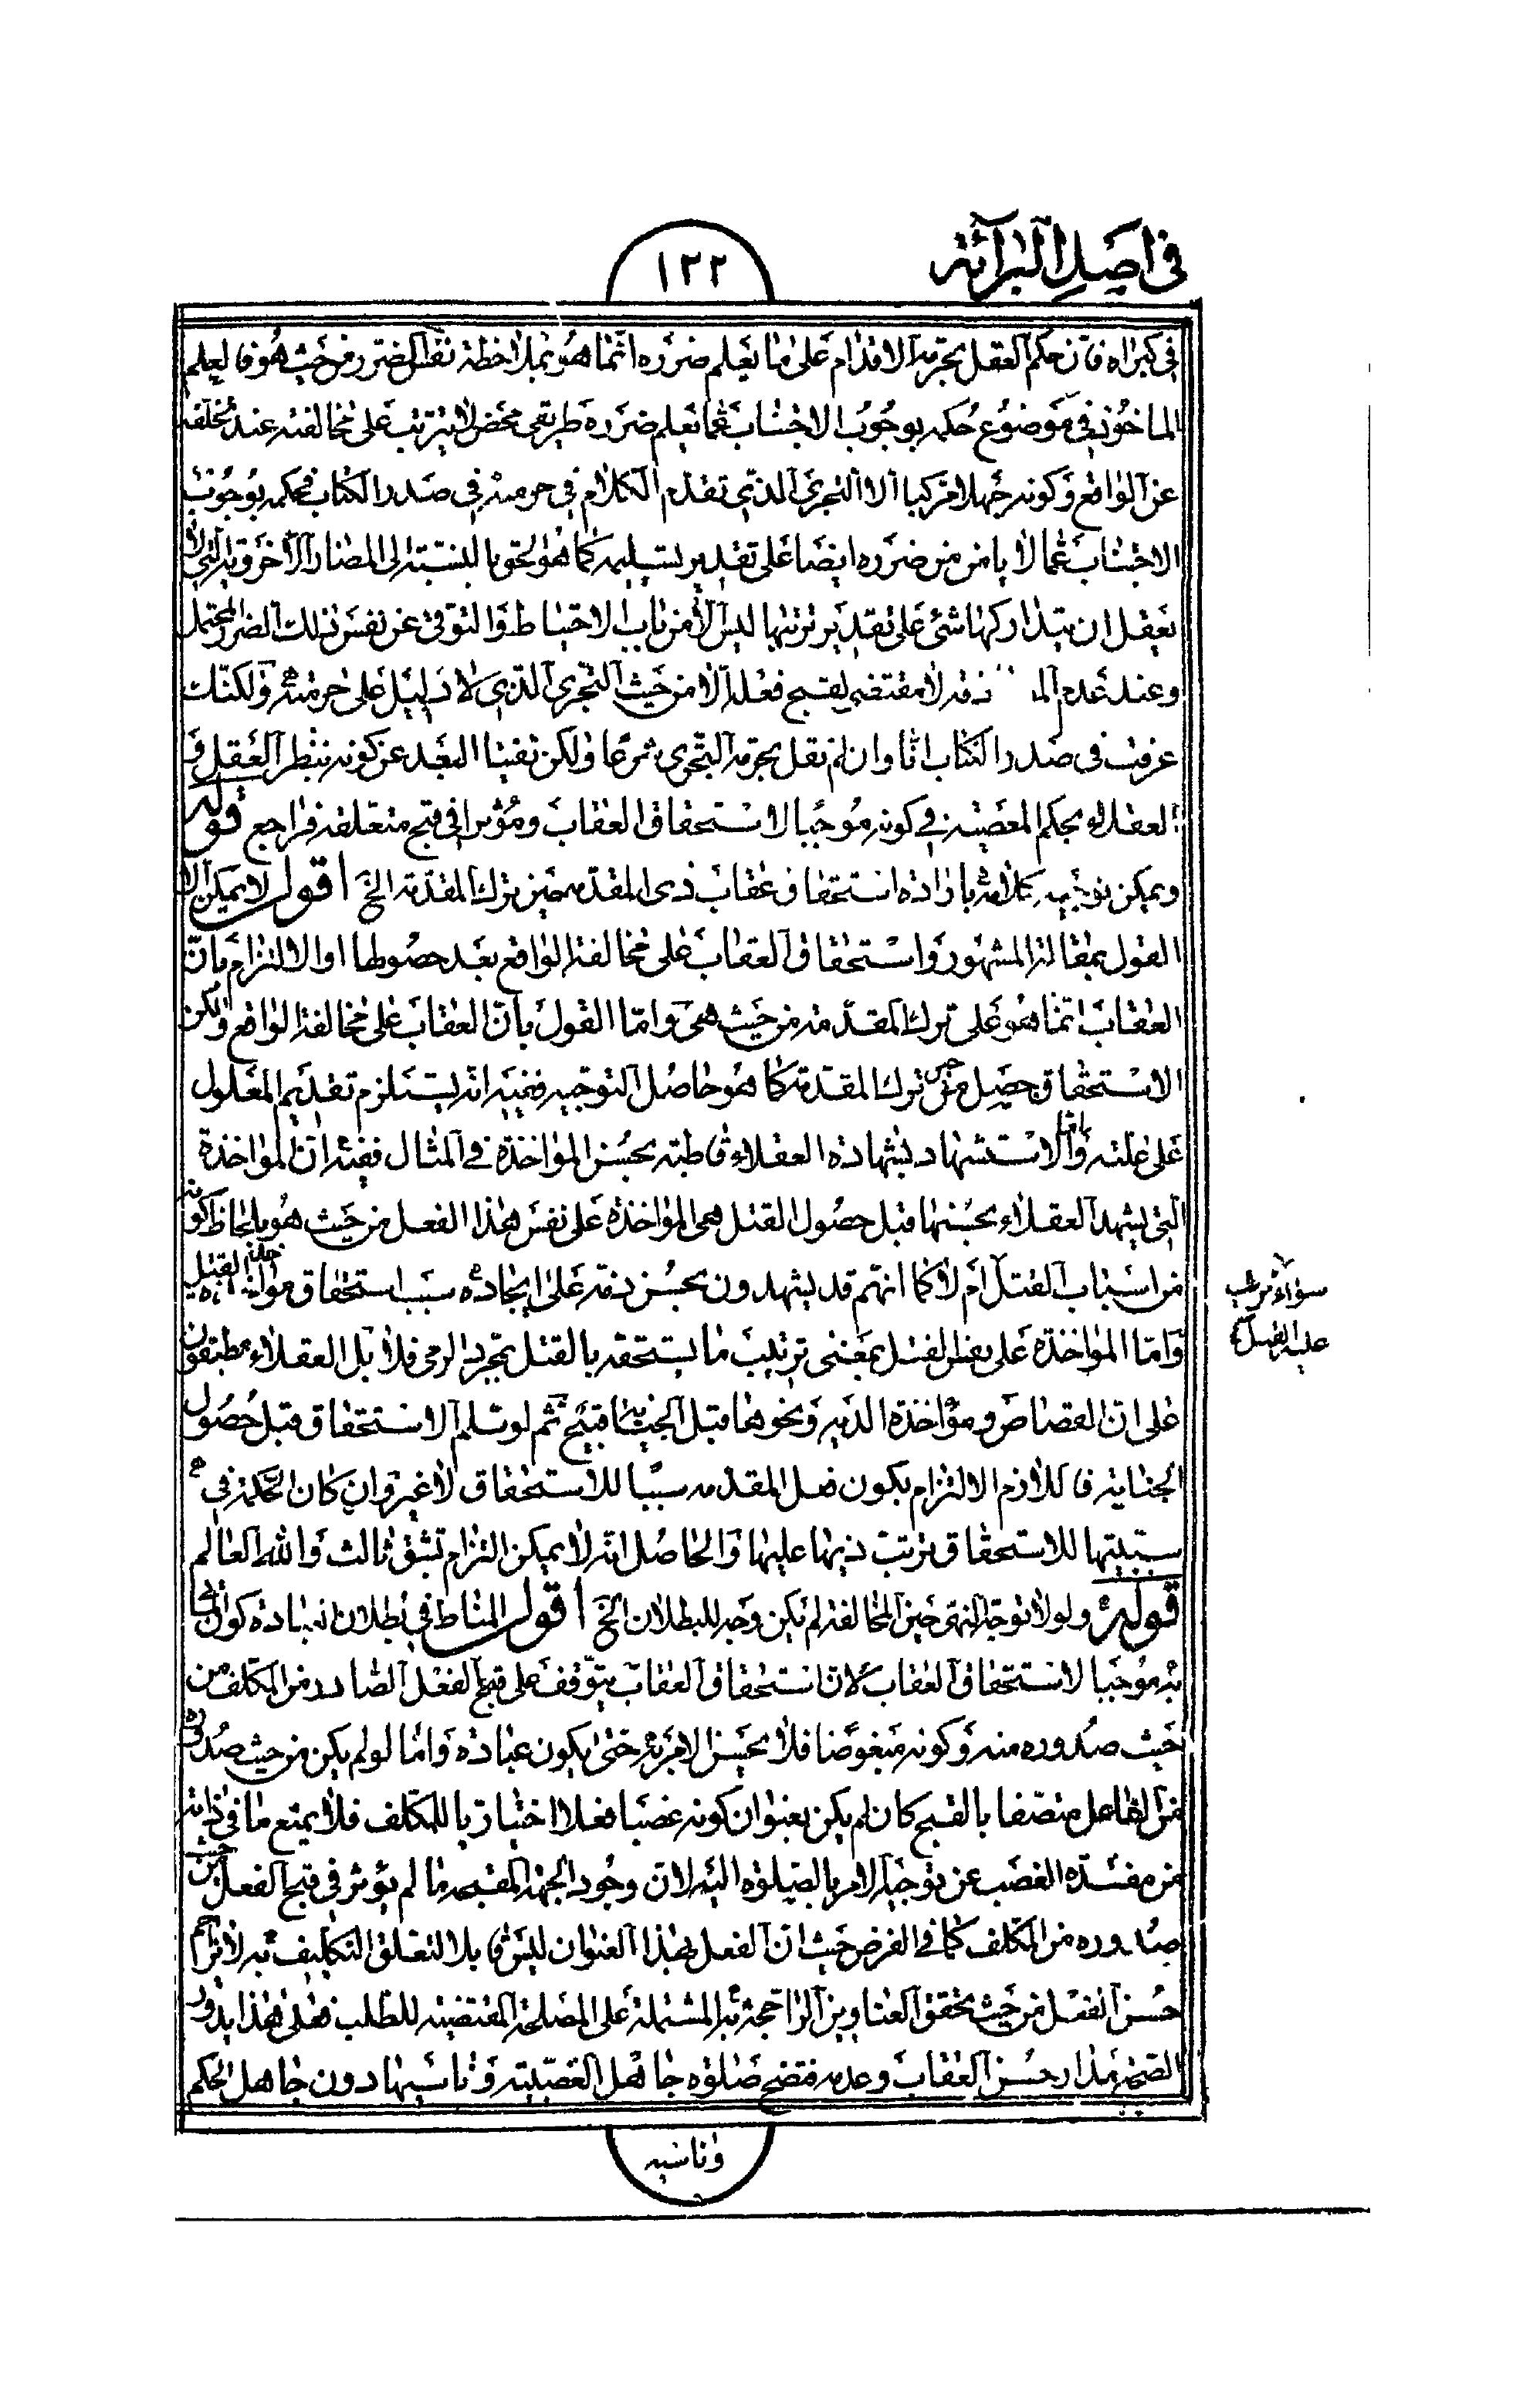 في اصل البرائة
١٢٢
في كبراه فان حكم العقل بحرمة الاقدام على ما يعلم ضرره انما هو بملاحظة نفس الضرر من حيث هو فالعلم
الماخوذ في موضوع حكمه بوجوب الاجتناب عما يعلم ضرره طريقي محض لا يترتب على مخالفته عند تخلفه
عن الواقع وكونه جهلا مركبا الا التجري الذي تقدم الكلام في حرمته في صدر الكتاب فحكمه بوجوب
الاجتناب عما لا يامن من ضرره ايضا على تقدير تسليمه كما هو الحق بالنسبة الى المضار الاخروية التي لا
يعقل ان يتداركها شئ على تقدير ترتبها ليس الا من باب الاحتياط والتوقي عن نفس ذلك الضرر المحتمل
وعند عدم لا مقتضي لقبح فعله الا من حيث التجري الذي لا دليل على حرمته ولكنك
عرفت في صدر الكتاب انا وان لم نقل بحرمة التجري شرعا ولكن نفينا البعد عن كونه بنظر العقل و
العقلاء بحكم المعصية في كونه موجبا لاستحقاق العقاب ومؤثرا في قبح متعلقه فراجع قوله
ويمكن توجيه كلامه بارادة استحقاق عقاب ذي المقدمة حين ترك المقدمة الخ اقول لا يمكن الا
القول بمقالة المشهور واستحقاق العقاب على مخالفة الواقع بعد حصولها او الالتزام بان
العقاب انما هو على ترك المقدمة من حيث هي واما القول بان العقاب على مخالفة الواقع ولكن
الاستحقاق حصل من حين ترك المقدمة كما هو حاصل التوجيه ففيه انه يستلزم تقديم المعلول
على علته واما الاستشهاد بشهادة العقلاء قاطبة بحسن المؤاخذة في المثال ففيه ان المؤاخذة
التي يشهد العقلاء بحسنها قبل حصول القتل هي المؤاخذة على نفس هذا الفعل من حيث هو بلحاظ كونه
من اسباب القتل ام لا كما انهم قد يشهدون بحسن ذمه على ايجاده سبب استحقاق القتل
سواء ترتب
عليه القتل
واما المؤاخذة على نفس القتل بمعنى ترتيب ما يستحقه بالقتل بمجرد الرمي فلا بل العقلاء مطبقون
على ان القصاص ومؤاخذة الدية ونحوهما قبل الجناية قبيح ثم لو سلم الاستحقاق قبل حصول
الجناية فاللازم الالتزام بكون فعل المقدمة سببا للاستحقاق لا غير وان كان الحكمة في
سببيتها للاستحقاق ترتب ذيها عليها والحاصل انه لا يمكن التزام شق ثالث والله العالم
قوله ولولا توجه النهي حين المخالفة لم يكن وجه للبطلان الخ اقول المناط في بطلان العبادة كون اتيا
نه موجبا لاستحقاق العقاب لان استحقاق العقاب يتوقف على قبح الفعل الصادر من المكلف من
حيث صدوره منه وكونه مبغوضا فلا يحسن الامر به حتى يكون عبادة واما لو لم يكن من حيث صدوره
من الفاعل متصفا بالقبح كان لم يكن بعنوان كونه غصبا فعلا اختياريا للمكلف فلا يمنع ما في ذاته
من مفسدة الغصب عن توجيه الامر بالصلوة اليه لان وجود الجهة المقبحة ما لم يؤثر في قبح الفعل من حيث
صدوره من المكلف كما في الفرض حيث ان الفعل بهذا العنوان ليس قابلا لتعلق التكليف به لا تزاحم
حسن الفعل من حيث تحقق العناوين الراجحة به المشتملة على المصلحة المقتضية للطلب فعلى هذا يدور
الصحة مدار حسن العقاب وعدمه فتصح صلوة جاهل الغصبية وناسيها دون جاهل الحكم
وناسيه